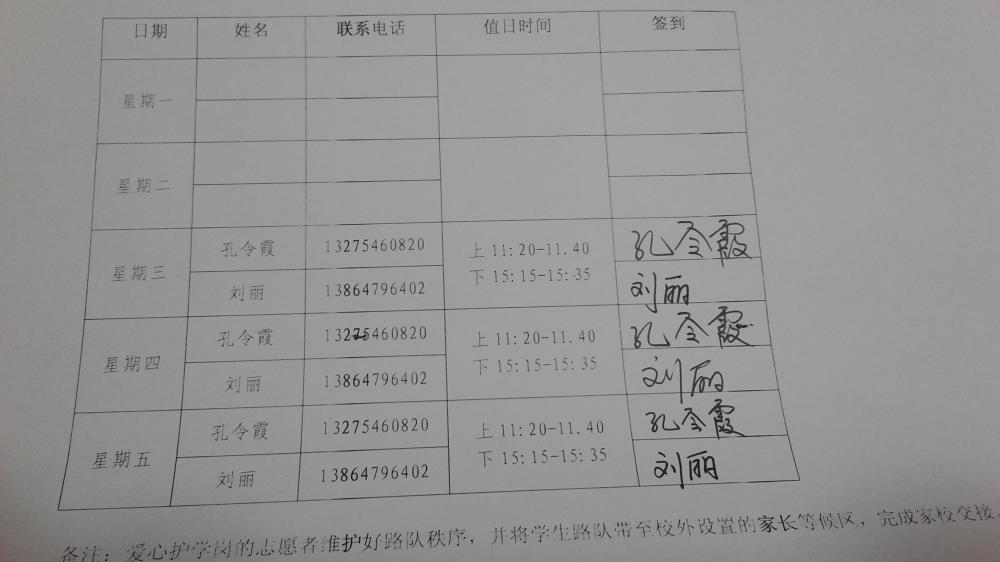 日期 姓名 联系电话 值日时间 签到
星期一
星期二
星期三 孔令霞 13275460820 上11:20-11.40 孔令霞
下15:15-15:35
刘丽 13864796402 刘丽
星期四 孔令霞 13275460820 上11:20-11.40 孔令霞
下15:15-15:35
刘丽 13864796402 刘丽
星期五 孔令霞 13275460820 上11:20-11.40 孔令霞
下15:15-15:35
刘丽 13864796402 刘丽
备注:爱心护学岗的志愿者维护好路队秩序,并将学生路队带至校外设置的家长等候区,完成家校交接。